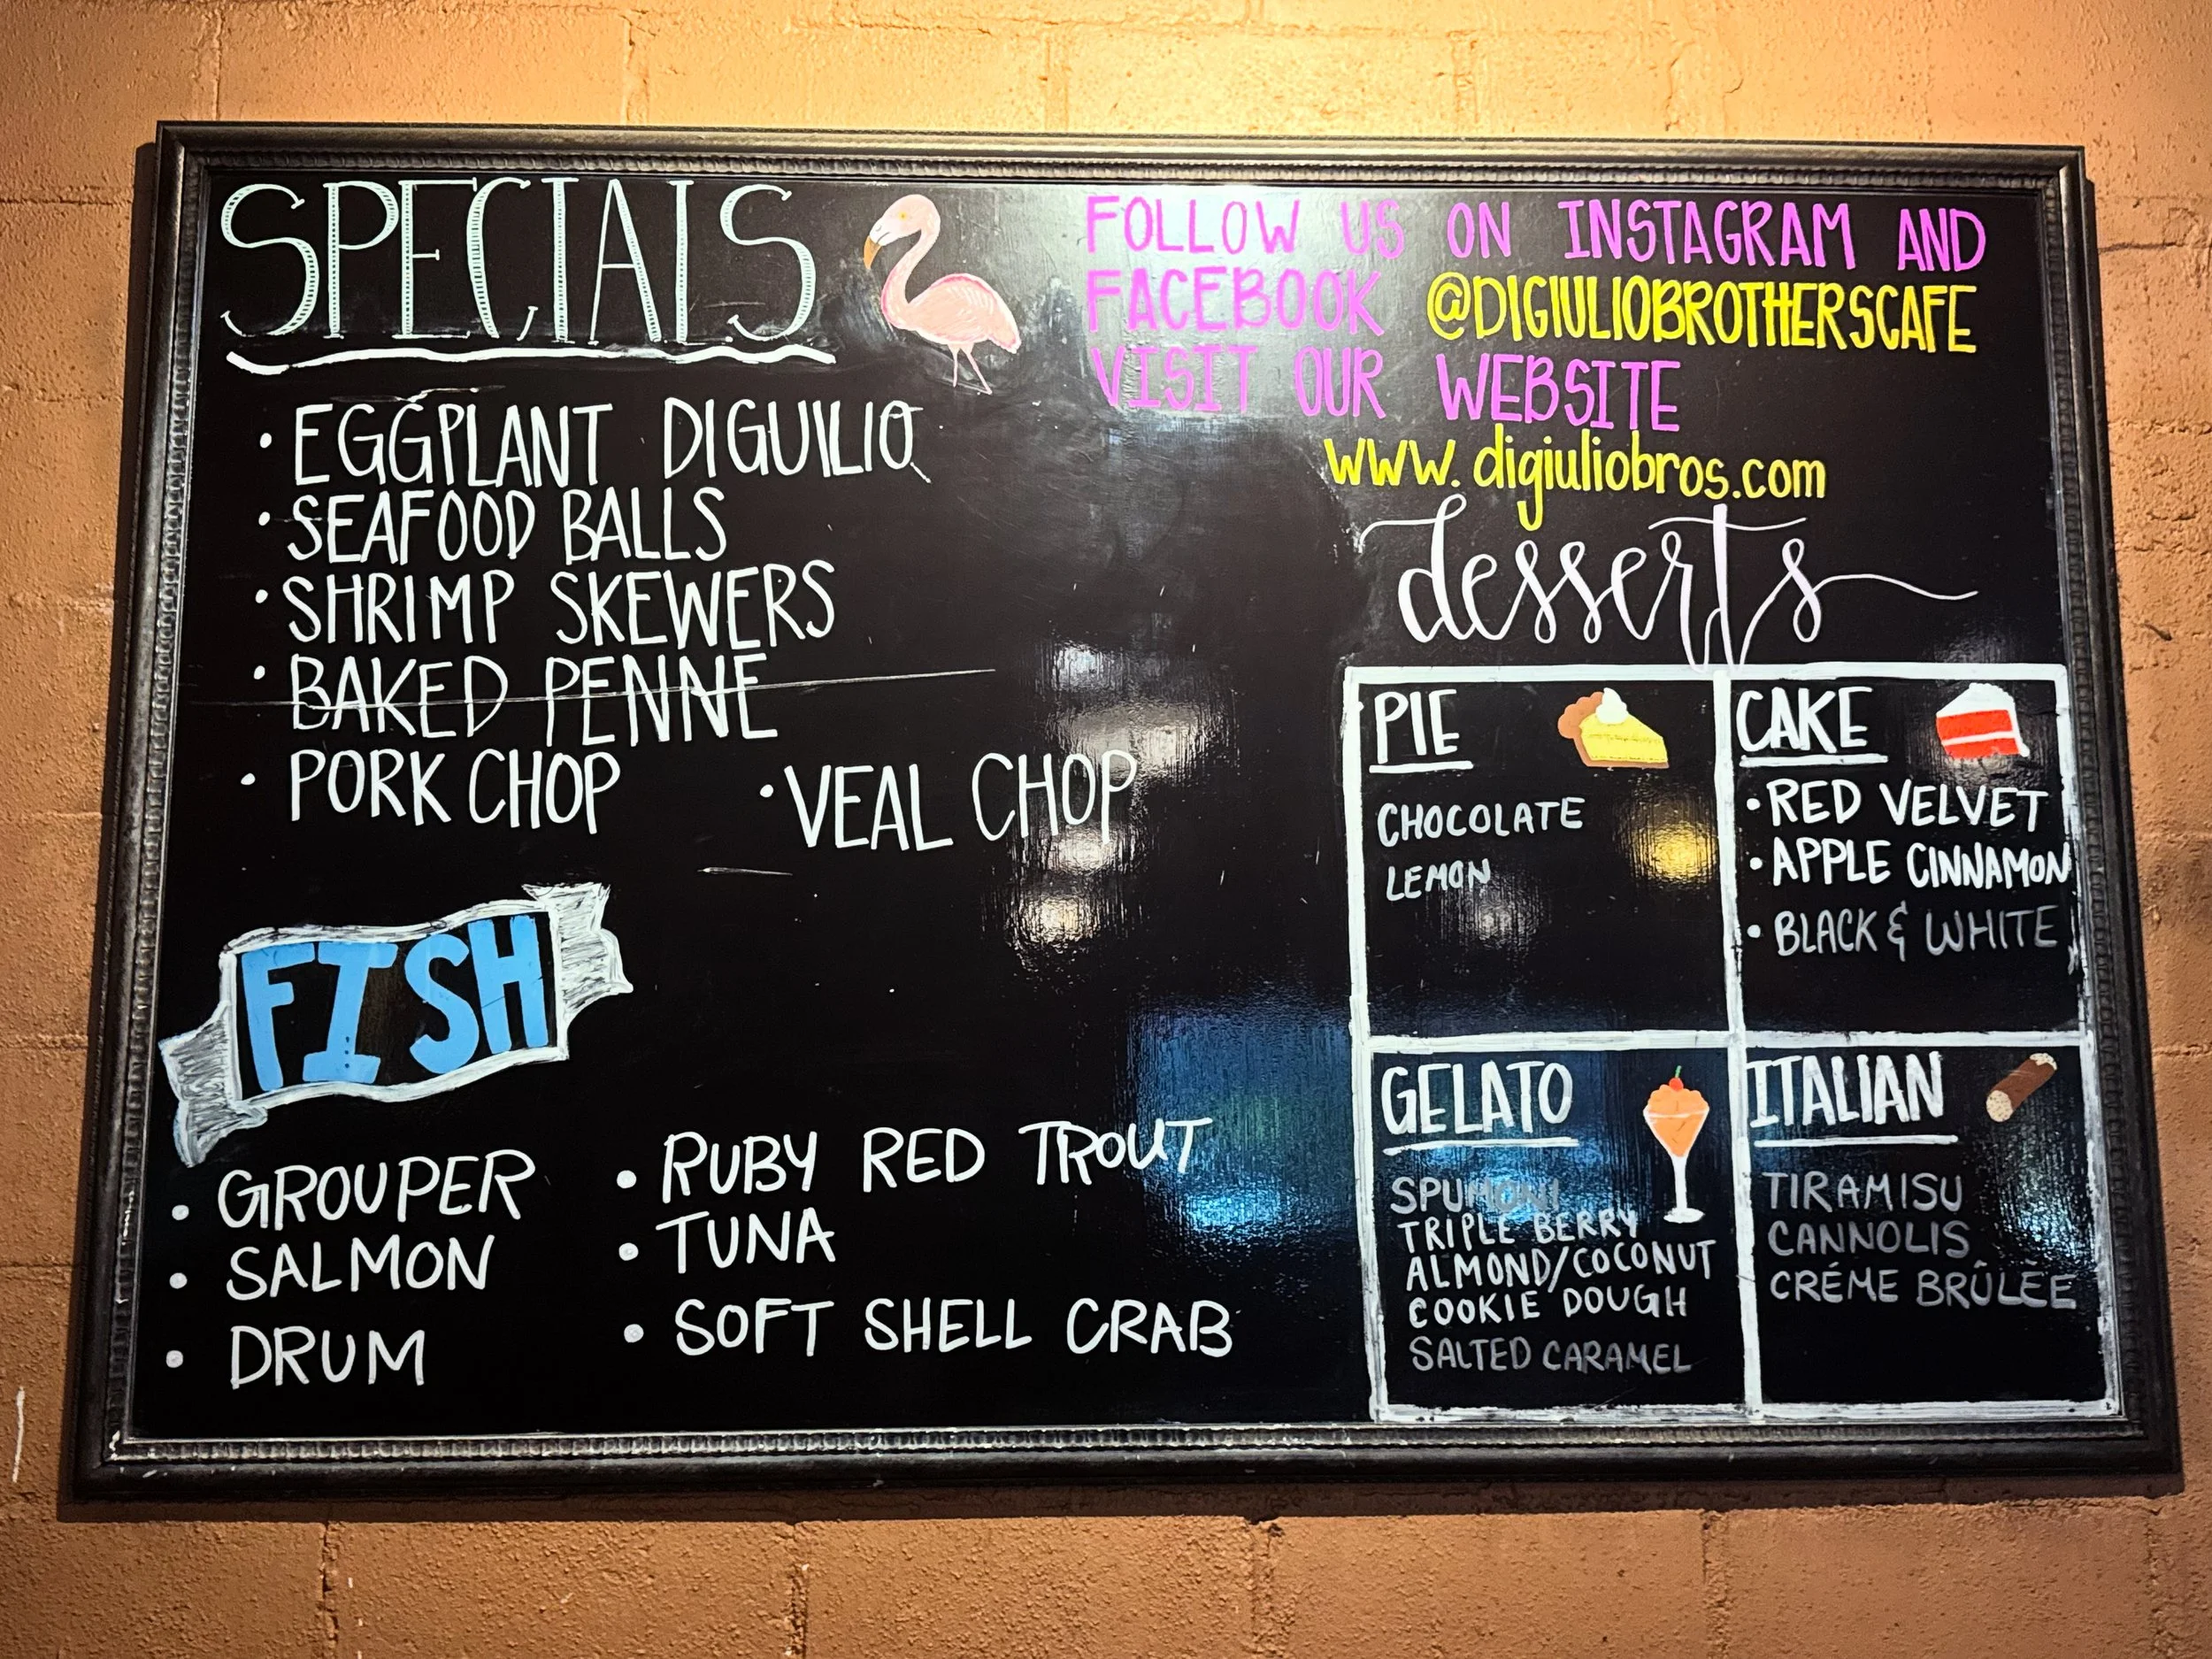 SPECIALS
• EGGPLANT DIGUILIO
• SEAFOOD BALLS
• SHRIMP SKEWERS
• BAKED PENNE
• PORK CHOP
• VEAL CHOP
FISH
• GROUPER
• SALMON
• DRUM
• RUBY RED TROUT
• TUNA
• SOFT SHELL CRAB
FOLLOW US ON INSTAGRAM AND
FACEBOOK @DIGIULIOBROTHERSCAFE
VISIT OUR WEBSITE
www.digiuliobros.com
desserts
PIE
CHOCOLATE
LEMON
CAKE
• RED VELVET
• APPLE CINNAMON
• BLACK & WHITE
GELATO
SPUMONI
TRIPLE BERRY
ALMOND/COCONUT
COOKIE DOUGH
SALTED CARAMEL
ITALIAN
TIRAMISU
CANNOLIS
CRÉME BRÛLÈE